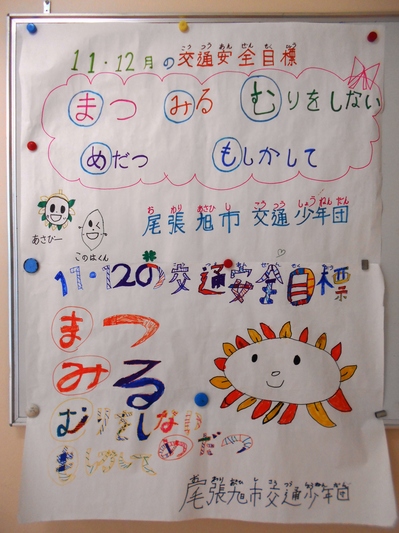 11・12月の交通安全目標
こうつうあんぜんもくひょう
まつ みる むりをしない
めだつ もしかして
おわりあさひしこうつうしょうねんだん
尾張旭市交通少年団
あさぴー
このはくん
11・12の交通安全目標
まつ
みる
むりをしない
めだつ
もしかして
尾張旭市交通少年団